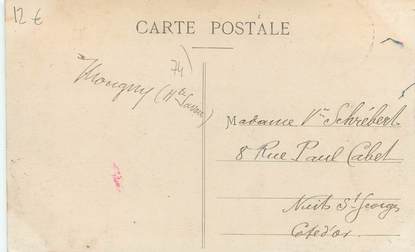 12 €
CARTE POSTALE
74
à Mongny (Hte Savoie)
Madame Vve Schrébert
8 Rue Paul Cabet
Nuits St Georges
Côte d'or